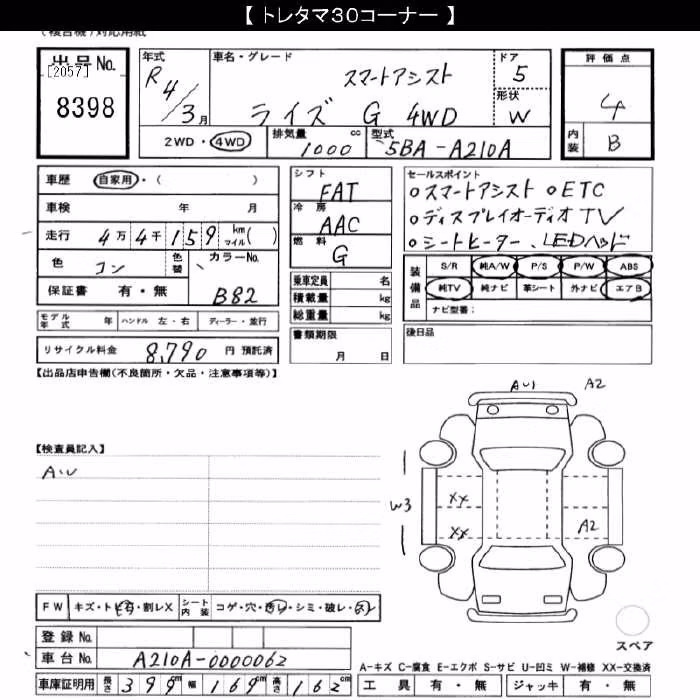 【トレタマ30コーナー】
(複合機)対応用紙
出品No.
[2057]
8398
年式
R4/3月
車名・グレード
スマートアシスト
ライズ G 4WD
ドア
5
形状
W
評価点
4
内装
B
2WD・4WD
排気量
1000 cc
型式
5BA-A210A
車歴 自家用・( )
車検 年 月
走行 4万4千159 km マイル( )
色 コン 色替 カラーNo.
B82
保証書 有・無
モデル年式 年 ハンドル 左・右 ディーラー・並行
リサイクル料金 8,790 円 預託済
シフト
FAT
冷房
AAC
燃料
G
乗車定員 名
積載量 kg
総重量 kg
書類期限
月 日
セールスポイント
○スマートアシスト ○ETC
○ディスプレイオーディオ TV
○シートヒーター、LEDヘッド
装備品
S/R 純A/W P/S P/W ABS
純TV 純ナビ 革シート 外ナビ エアB
ナビ型番:
後日品
【出品店申告欄(不良箇所・欠品・注意事項等)】
【検査員記入】
AU1 A2
W3
XX
XX
A2
スペア
FW キズ・トビ石・割レX シート内装 コゲ・穴・汚レ・シミ・破レ・スレ
登録No.
車台No. A210A-0000062
車庫証明用 長さ 399cm 幅 169cm 高さ 162cm
A-キズ C-腐食 E-エクボ S-サビ U-凹ミ W-補修 XX-交換済
工具 有・無 ジャッキ 有・無